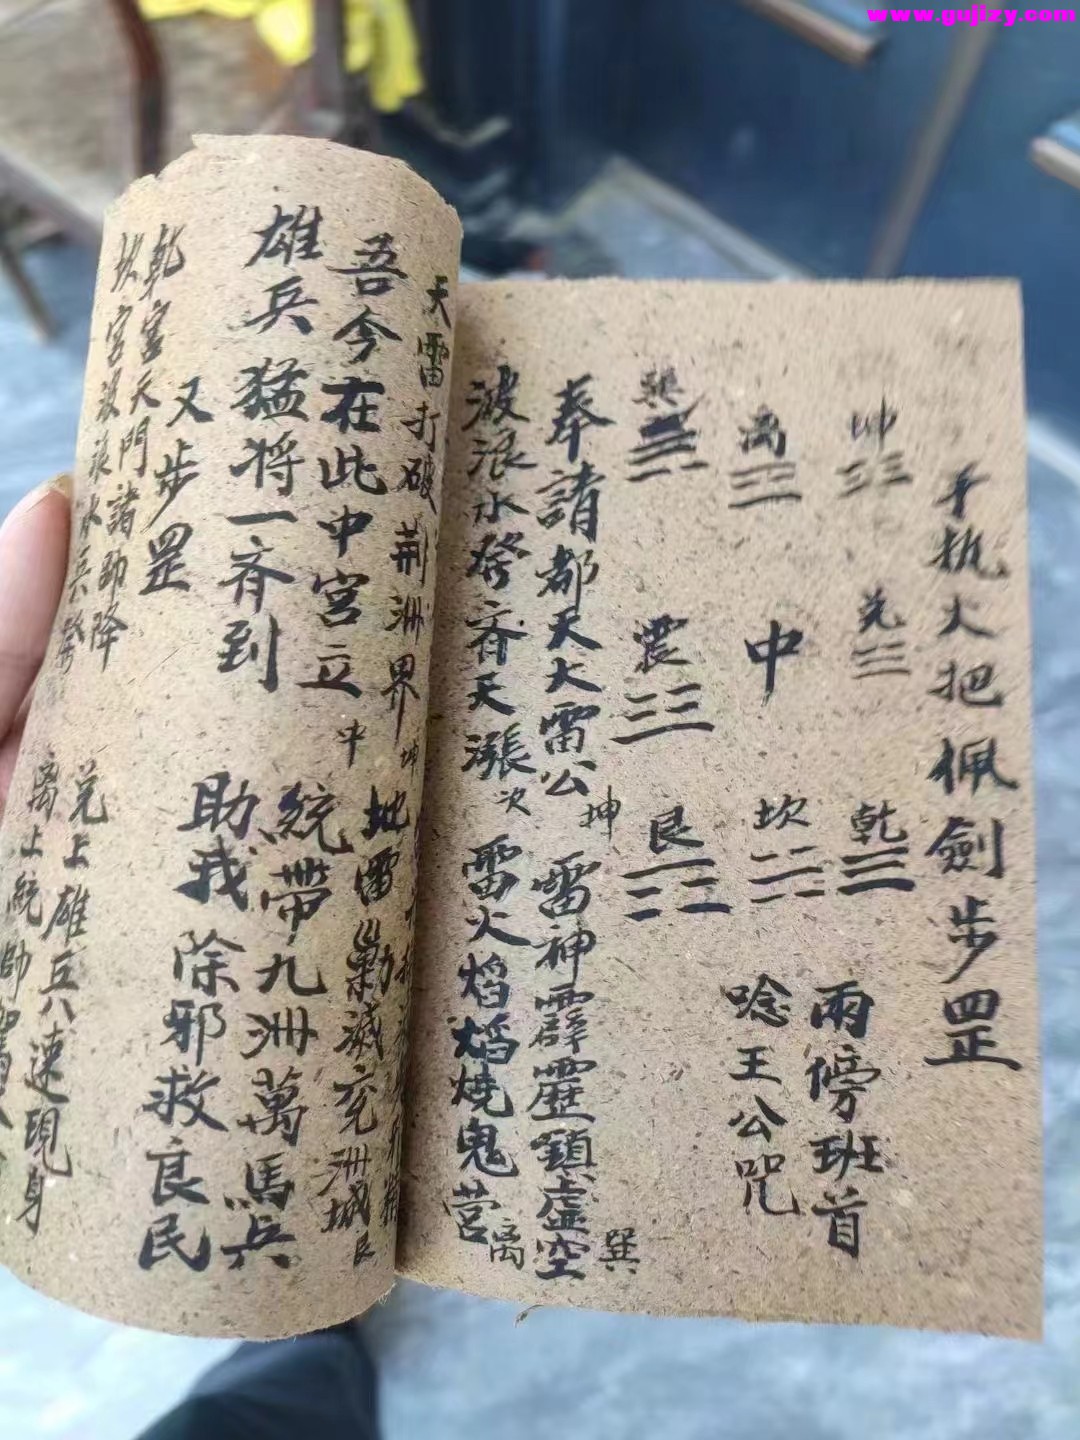 www.gujizy.com
手执火把佩劍步罡
坤 兑 乾
離 中 坎
巽 震 艮
兩傍班首
唸王公咒
奉請都天大雷公 坤 雷神霹靂鎮虛空 巽
波浪水 齊天漲 次 雷火焰焰燒鬼营 离
天雷打破荆洲界 坤
地雷勦滅兖洲城 艮
吾今在此中宮立 中 統帶九洲萬馬兵
雄兵猛将一齊到 助我除邪救良民
又步罡
乾宮天門諸帥降 兑上雄兵八速現身
坎宮波浪水兵發 离上統帥